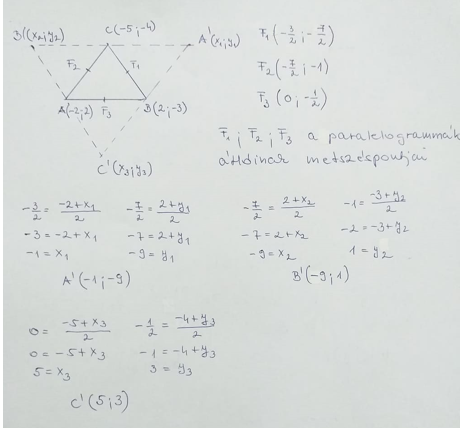 C(-5;-4)
B'(x₂;y₂)
A'(x₁;y₁)
F₁(-3/2;-7/2)
F₂
F₁
F₂(-7/2;-1)
A(-2;2)
F₃
B(2;-3)
F₃(0;-1/2)
C'(x₃;y₃)
F₁;F₂;F₃ a paralelogrammák
átlóinak metszéspontjai
-3/2 = (-2+x₁)/2
-7/2 = (2+y₁)/2
-3 = -2+x₁
-7 = 2+y₁
-1 = x₁
-9 = y₁
A'(-1;-9)
-7/2 = (2+x₂)/2
-1 = (-3+y₂)/2
-7 = 2+x₂
-2 = -3+y₂
-9 = x₂
1 = y₂
B'(-9;1)
0 = (-5+x₃)/2
-1/2 = (-4+y₃)/2
0 = -5+x₃
-1 = -4+y₃
5 = x₃
3 = y₃
C'(5;3)